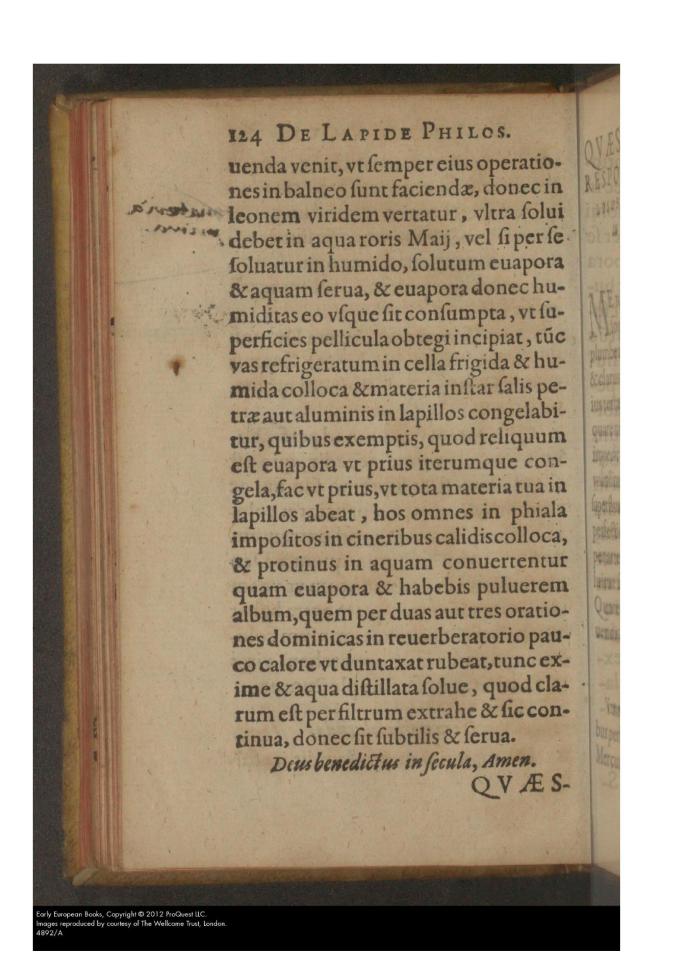 124 DE LAPIDE PHILOS.
uenda venit, vt semper eius operatio-
nes in balneo sunt faciendæ, donec in
leonem viridem vertatur, vltra solui
debet in aqua roris Maij, vel si per se
soluatur in humido, solutum euapora
& aquam serua, & euapora donec hu-
miditas eo vsque sit consumpta, vt su-
perficies pellicula obtegi incipiat, tūc
vas refrigeratum in cella frigida & hu-
mida colloca & materia instar salis pe-
træ aut aluminis in lapillos congelabi-
tur, quibus exemptis, quod reliquum
est euapora vt prius iterumque con-
gela, fac vt prius, vt tota materia tua in
lapillos abeat, hos omnes in phiala
impositos in cineribus calidis colloca,
& protinus in aquam conuertentur
quam euapora & habebis puluerem
album, quem per duas aut tres oratio-
nes dominicas in reuerberatorio pau-
co calore vt duntaxat rubeat, tunc ex-
ime & aqua distillata solue, quod cla-
rum est per filtrum extrahe & sic con-
tinua, donec sit subtilis & serua.
Deus benedictus in secula, Amen.
QVÆS-
Early European Books, Copyright © 2012 ProQuest LLC.
Images reproduced by courtesy of The Wellcome Trust, London.
4892/A